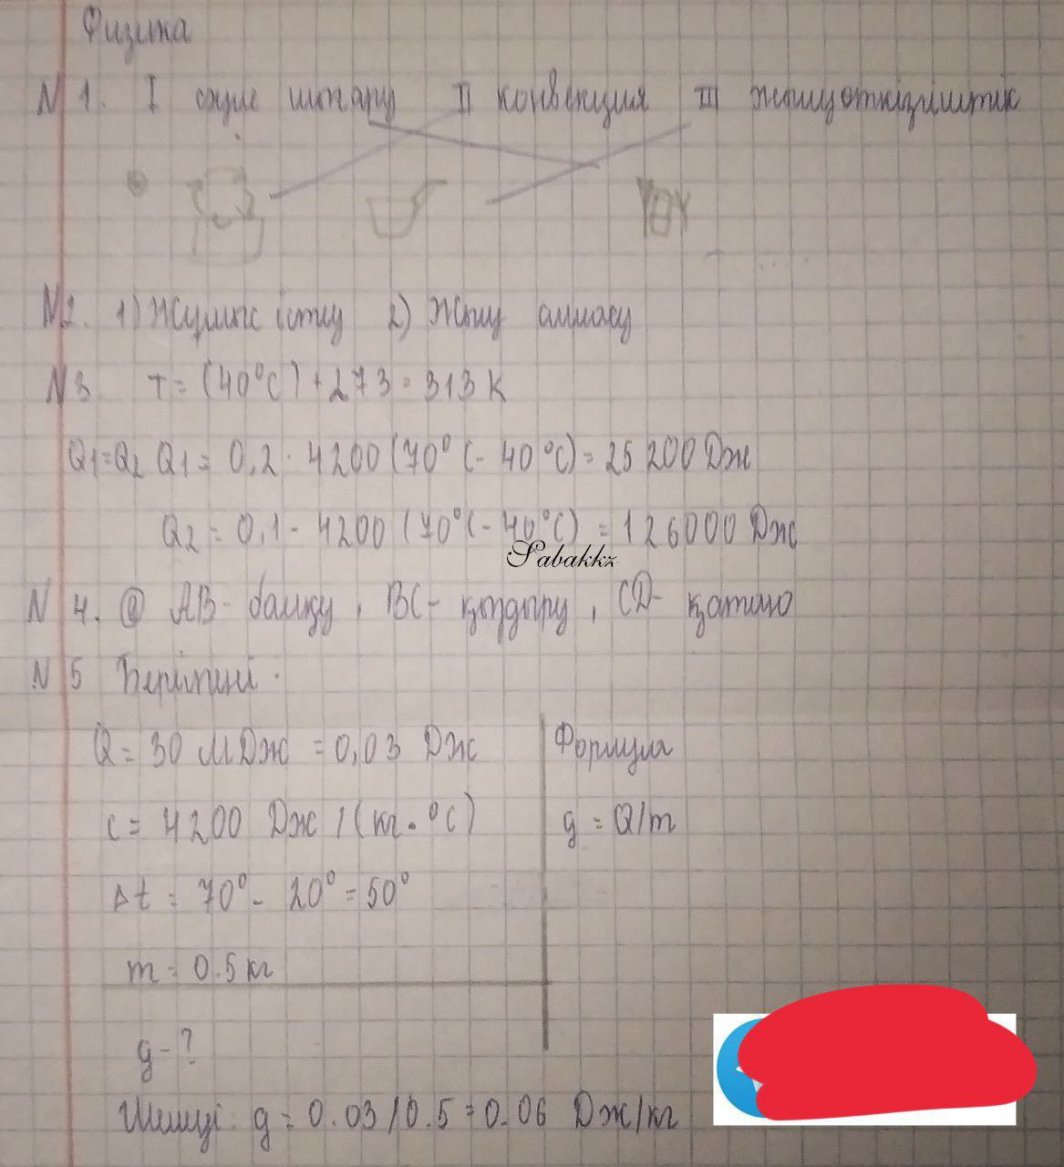 Физика
N 1. I сәуле шығару II конвекция III жылуөткізгіштік
N2. 1) Жұмыс істеу 2) Жылу алмасу
N 3 T = (40°C) + 273 = 313 K
Q1=Q2 Q1 = 0,2 · 4200 (70°C - 40°C) = 25 200 Дж
Q2 = 0,1 - 4200 (70°C - 40°C) = 126000 Дж
Sabakkz
N 4. @ AB - балқу, BC - қыздыру, CD - қатаю
N 5 Берілгені:
Q = 30 МДж = 0,03 Дж
Формула
c = 4200 Дж / (кг · °C)
g = Q/m
Δt = 70° - 20° = 50°
m = 0.5 кг
g - ?
Шешуі: g = 0.03 / 0.5 = 0.06 Дж/кг